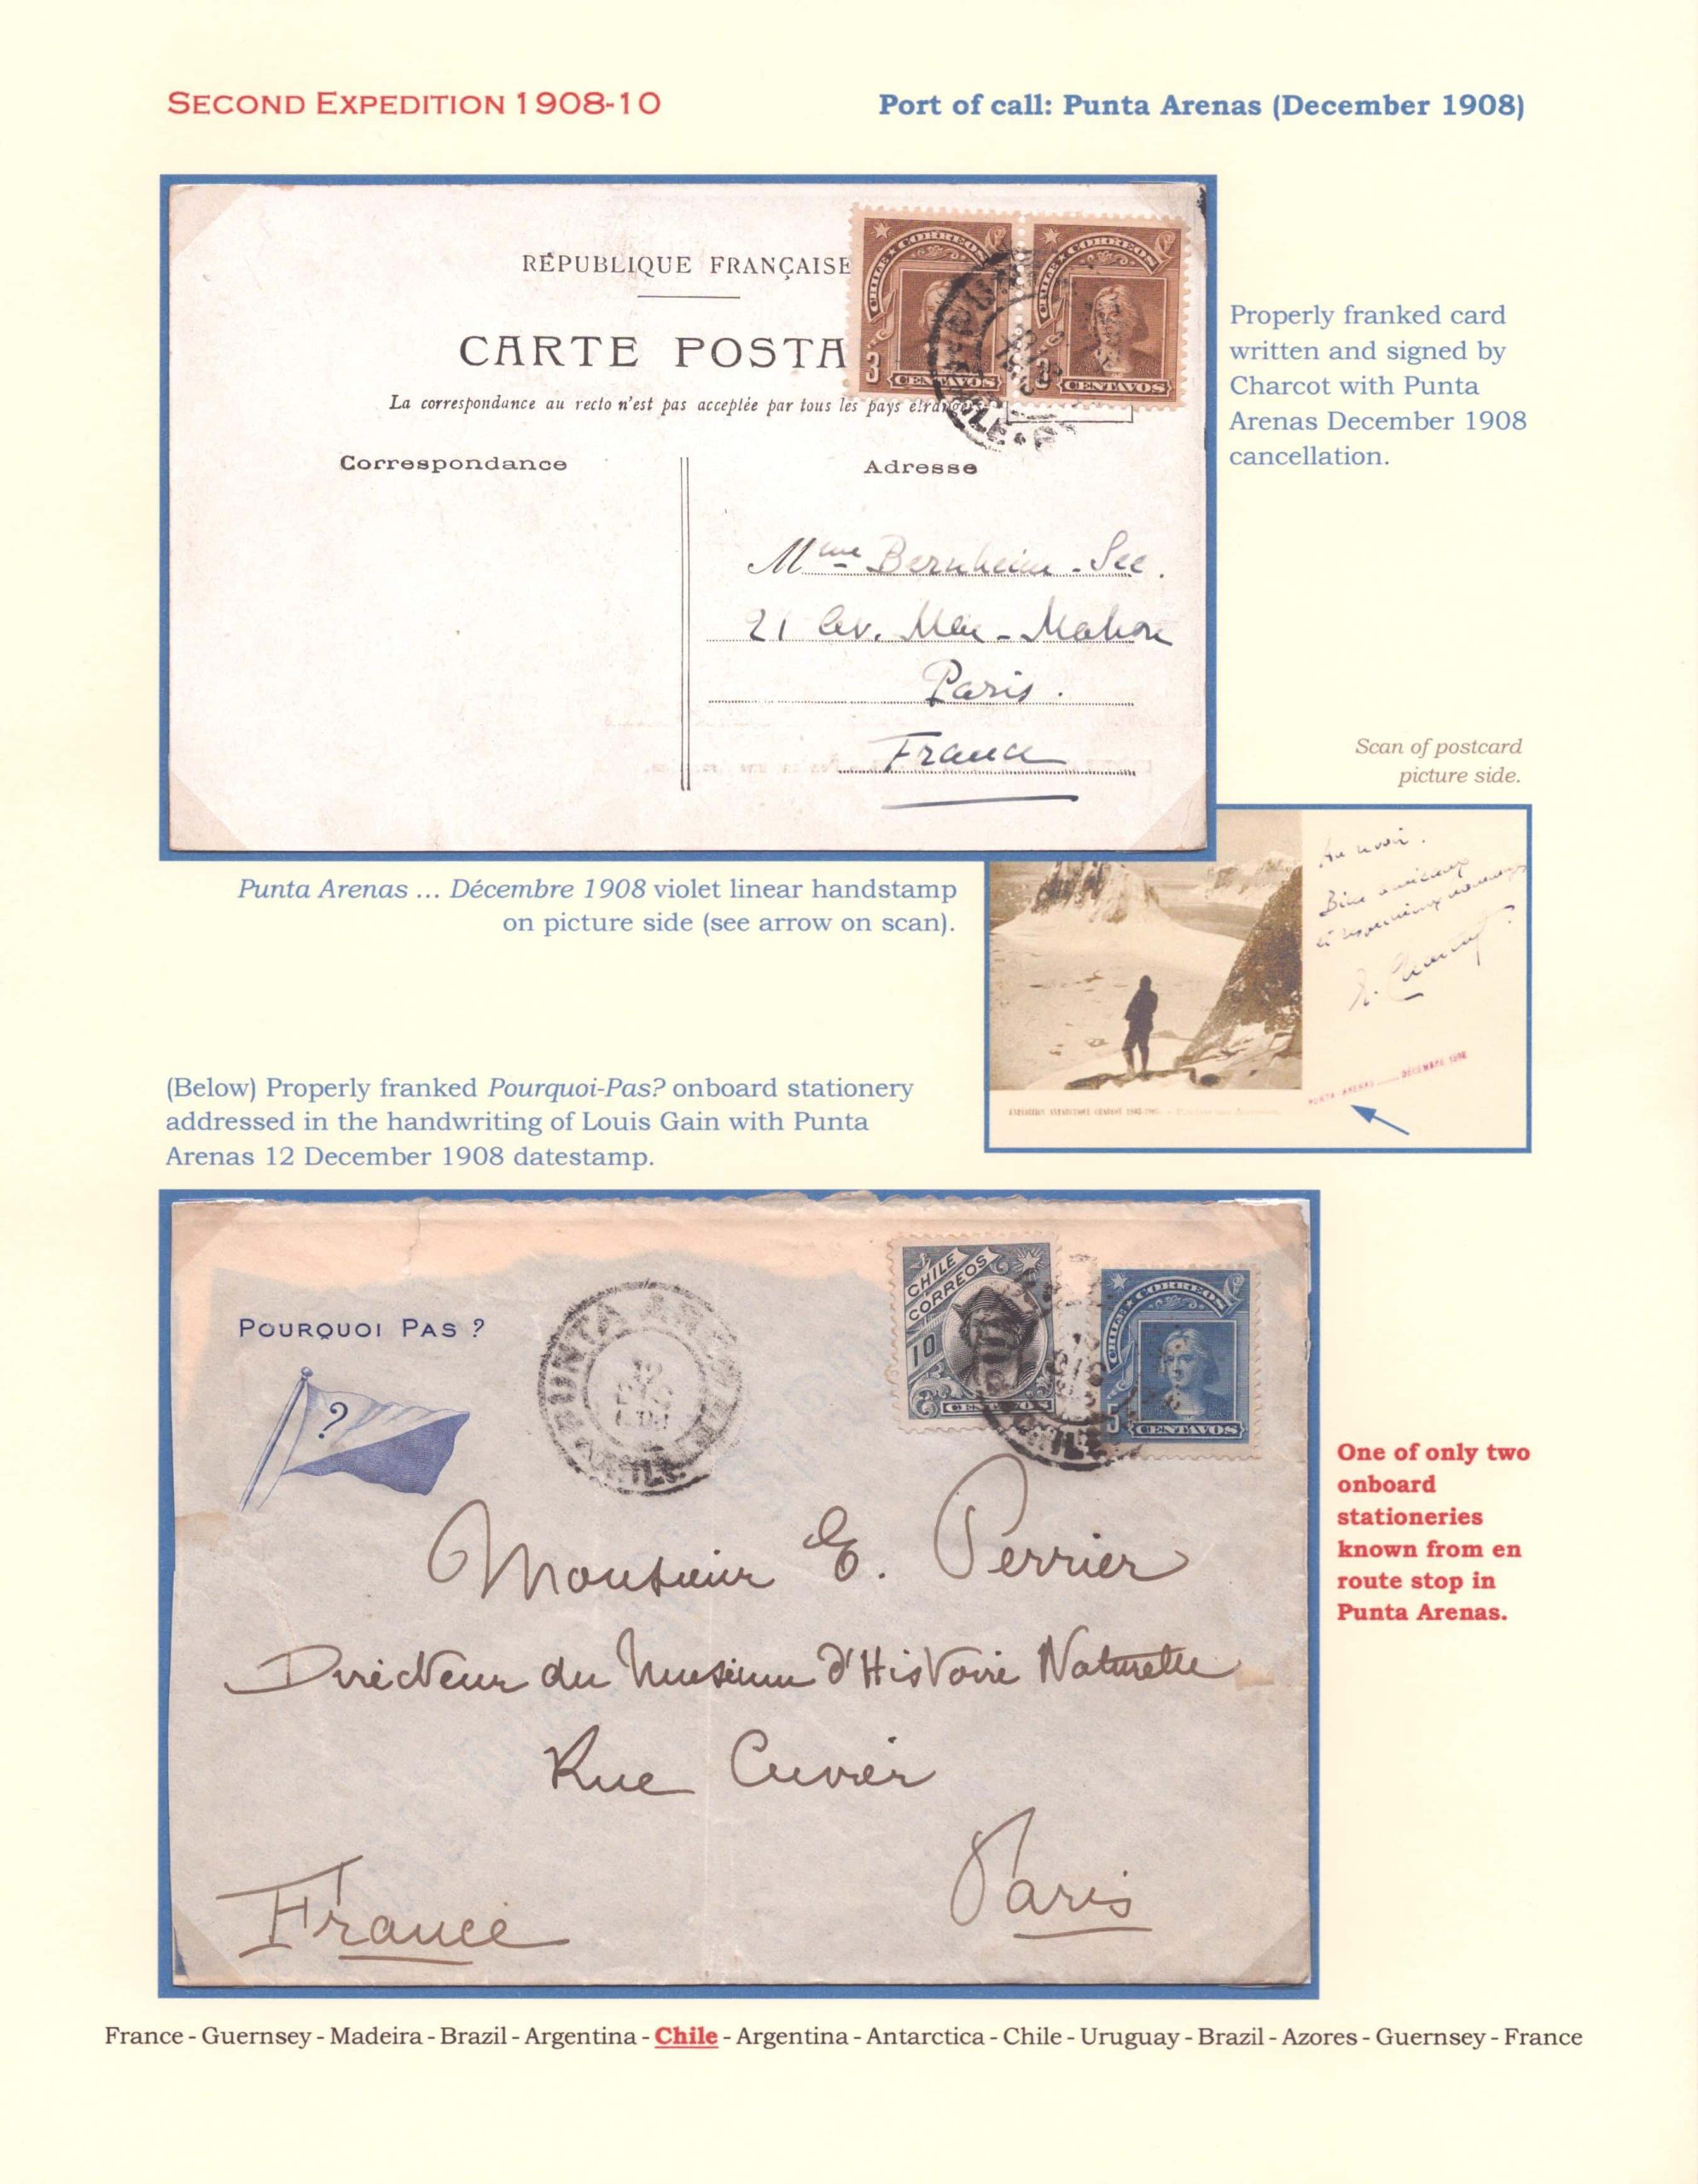 SECOND EXPEDITION 1908-10
Port of call: Punta Arenas (December 1908)
RÉPUBLIQUE FRANÇAISE
CARTE POSTA
La correspondance au recto n'est pas acceptée par tous les pays étrangers
Correspondance
Adresse
CHILE CORREOS
3 CENTAVOS
CHILE CORREOS
3 CENTAVOS
Mme Bernheim-See.
21 av. Mac-Mahon
Paris.
France
Properly franked card
written and signed by
Charcot with Punta
Arenas December 1908
cancellation.
Scan of postcard
picture side.
Au revoir.
PUNTA-ARENAS ...... DÉCEMBRE 1908
EXPÉDITION ANTARCTIQUE CHARCOT 1903-1905.
Punta Arenas ... Décembre 1908 violet linear handstamp
on picture side (see arrow on scan).
(Below) Properly franked Pourquoi-Pas? onboard stationery
addressed in the handwriting of Louis Gain with Punta
Arenas 12 December 1908 datestamp.
POURQUOI PAS ?
?
PUNTA ARENAS
12
DIC
CHILE
CHILE
CORREOS
10
CENTAVOS
CHILE CORREOS
5 CENTAVOS
Monsieur E. Perrier
Directeur du Muséum d'Histoire Naturelle
Rue Cuvier
Paris
France
One of only two
onboard
stationeries
known from en
route stop in
Punta Arenas.
France - Guernsey - Madeira - Brazil - Argentina - Chile - Argentina - Antarctica - Chile - Uruguay - Brazil - Azores - Guernsey - France